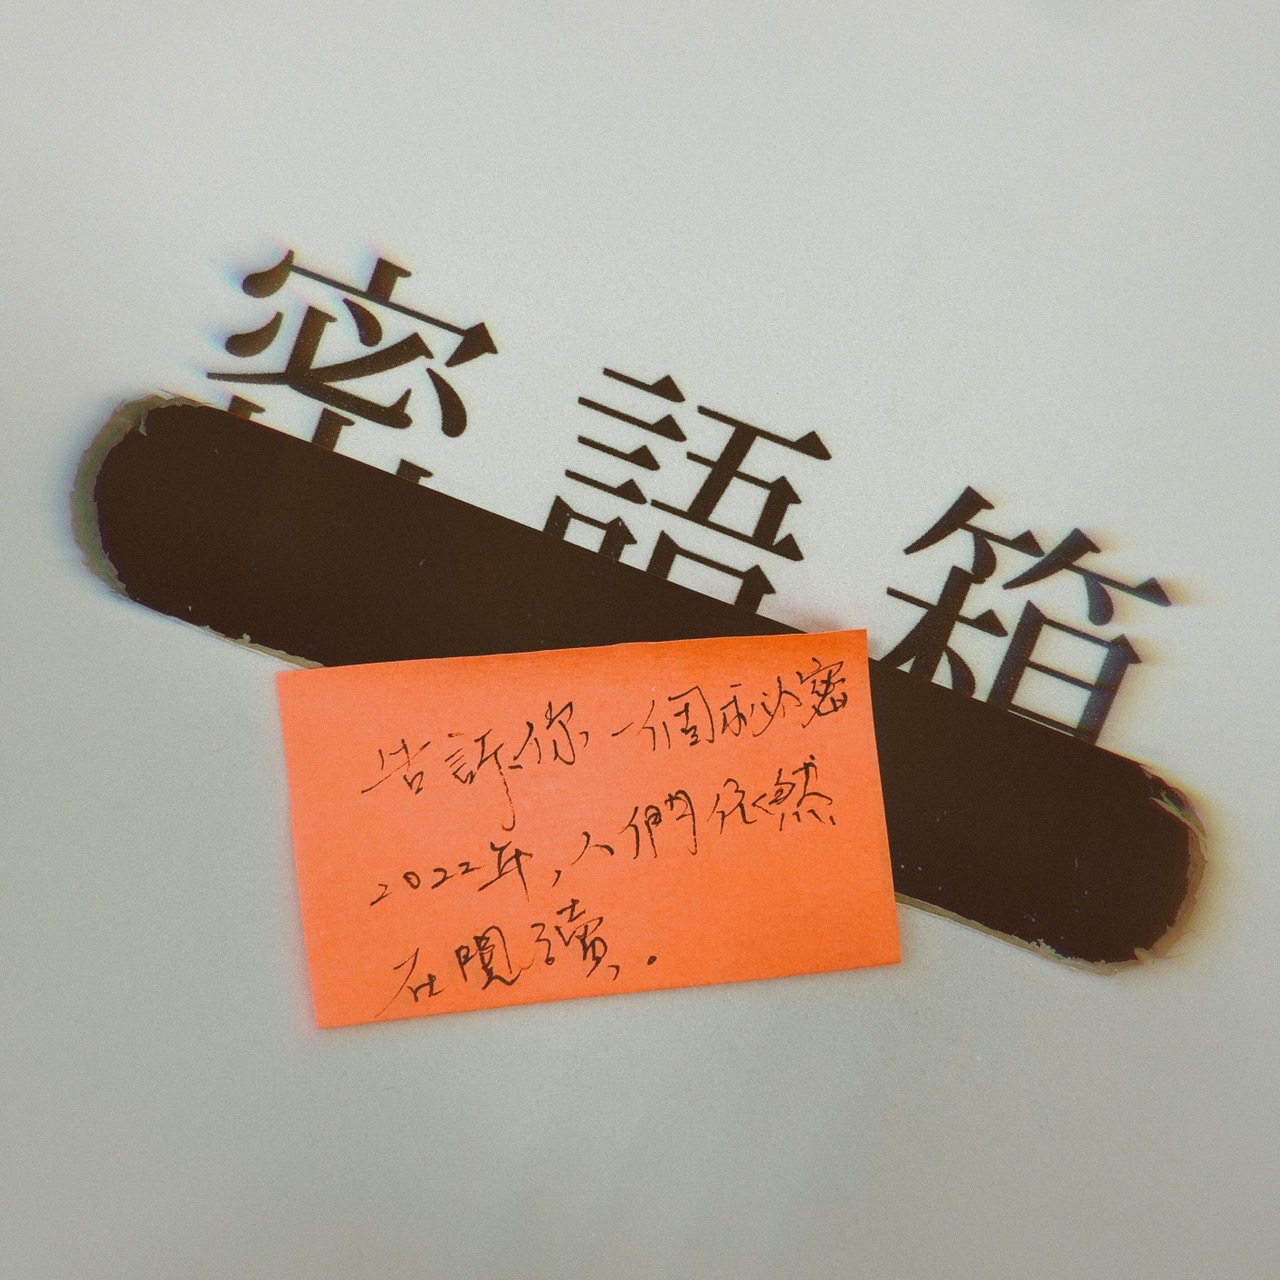 密語箱
告訴你一個秘密
2022年,人們依然
在閱讀.